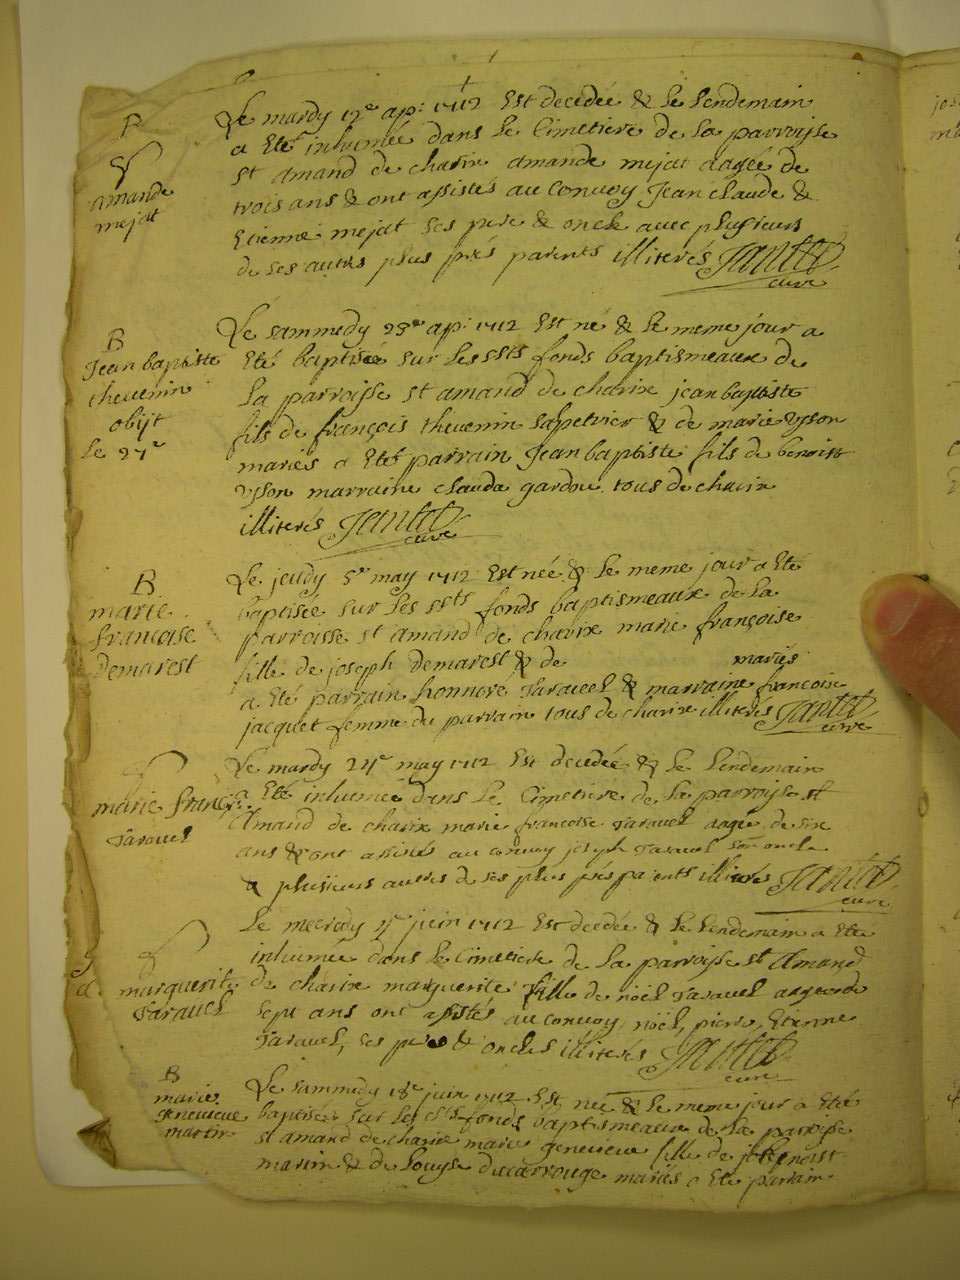 amande
mejat
Le mardy 12e ap: 1712 Est decedée & le Lendemain
a Eté inhumée dans le Cimetiere de la parroisse
st amand de charix amande mejat aagée de
trois ans & ont assistés au Convoy Jean claude &
Etienne mejat ses pere & oncle avec plusieurs
de ses autres plus prés parents illiterés
curé
B
Jean baptiste
thevenin
obijt
le 27e
Le sammedy 23e ap: 1712 Est né & le meme jour a
Eté baptisée sur les ssts fonds baptismeaux de
la parroisse st amand de charix jean baptiste
fils de françois thevenin salpetrier & de marie ysson
mariés a Eté parrain Jean baptiste fils de benoist
ysson marraine clauda gardon tous de charix
illiterés
curé
B
marie
francoise
Demarest
Le jeudy 5e may 1712 Est née & le meme jour a Eté
baptisée sur les ssts fonds baptismeaux de la
parroisse st amand de charix marie françoise
fille de joseph Demarest & de mariés
a Eté parrain honnoré Taravel & marraine francoise
jacquet femme du parrain tous de charix illiterés
curé
marie franç:
Taravel
Le mardy 24e may 1712 Est decedée & le Lendemain
a Eté inhumée dans Le Cimetiere de la parroisse st
Amand de charix marie francoise Taravel aagée de six
ans & ont assistés au convoy joseph Taravel son oncle
& plusieurs autres de ses plus prés parents illiterés
curé
marguerite
Taravel
Le mecredy juin 1712 Est decedée & le Lendemain a Eté
inhumée dans le Cimetiere de la parroisse st Amand
de charix marguerite fille de nöel Taravel aagée de
sept ans ont assistés au convoy nöel, pierre, Etienne
Taravel, ses pere & oncles illiterés
curé
B
marie
genevieve
martin
Le sammedy 18e juin 1712 Est née & le meme jour a Eté
baptisée sur les ssts fonds baptismeaux de la parroisse
st amand de charix marie genevieve fille de benoist
martin & de Louyse ducarrouge mariés a Eté parrain